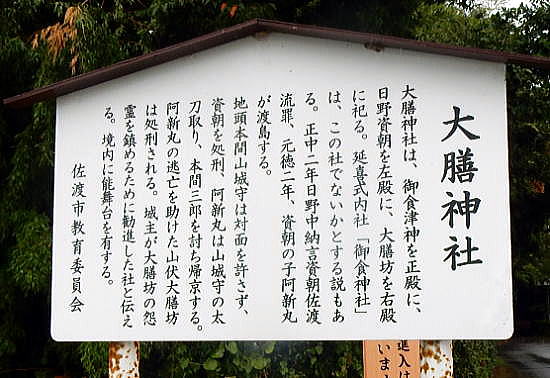 大膳神社
大膳神社は、御食津神を正殿に、
日野資朝を左殿に、大膳坊を右殿
に祀る。延喜式内社「御食神社」
は、この社でないかとする説もあ
る。正中二年日野中納言資朝佐渡
流罪、元徳二年、資朝の子阿新丸
が渡島する。
地頭本間山城守は対面を許さず、
資朝を処刑、阿新丸は山城守の太
刀取り、本間三郎を討ち帰京する。
阿新丸の逃亡を助けた山伏大膳坊
は処刑される。城主が大膳坊の怨
霊を鎮めるために勧進した社と伝え
る。境内に能舞台を有する。
佐渡市教育委員会
進入は
いま